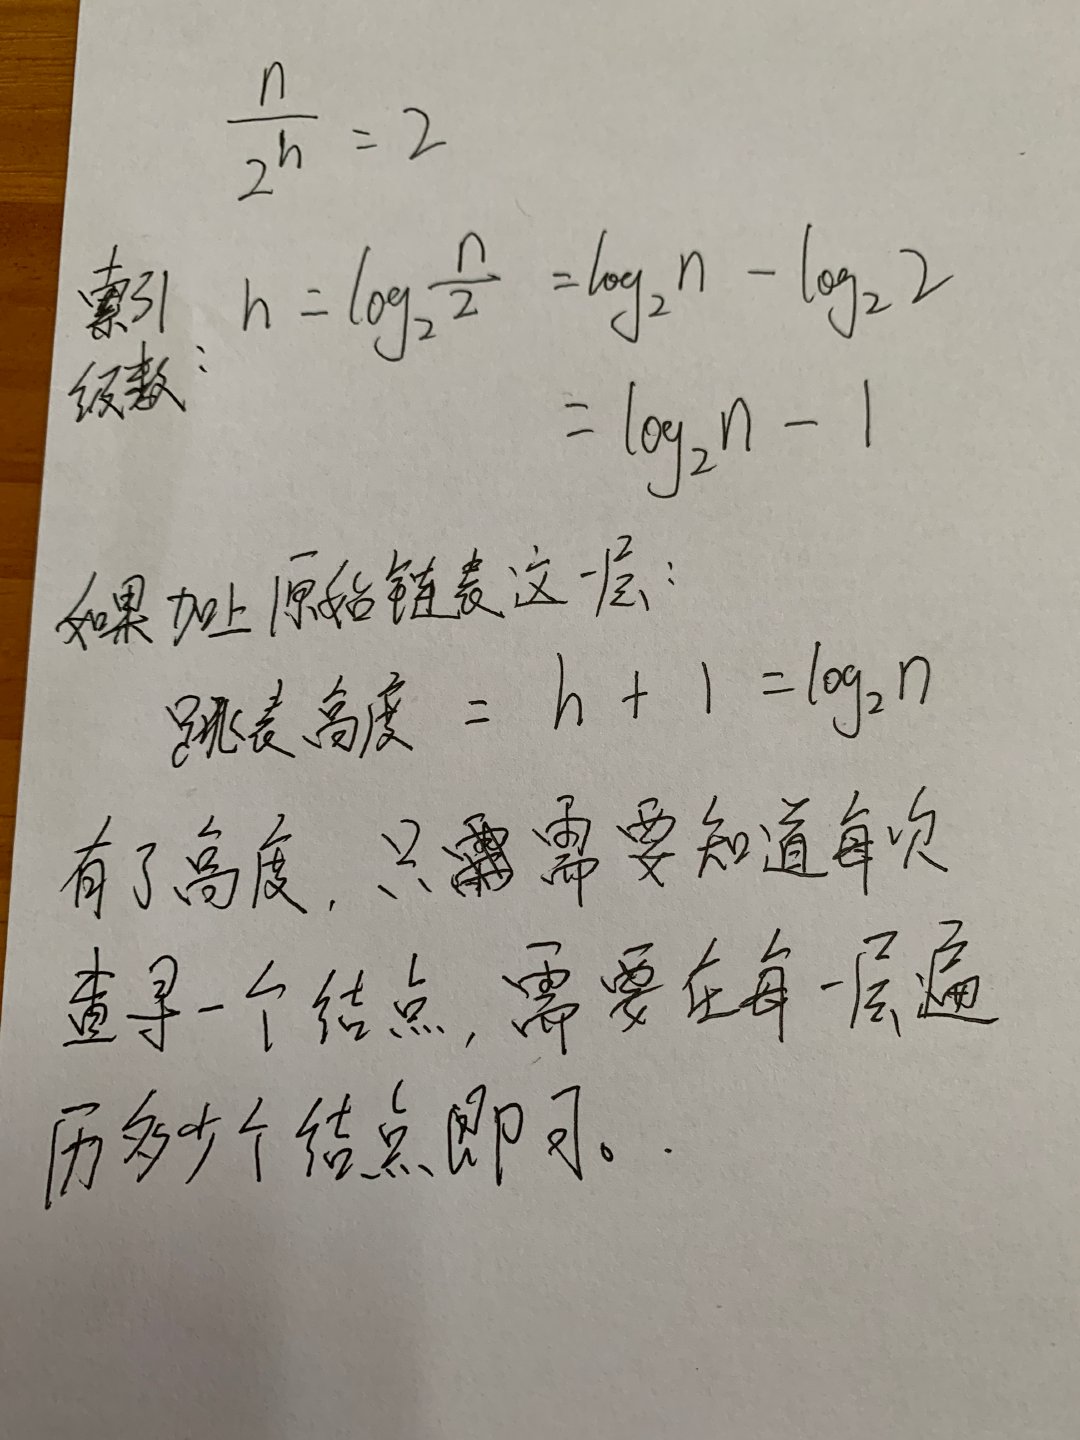 n/2^h = 2
索引级数: h = log₂ n/2 = log₂n - log₂2
= log₂n - 1
如果加上原始链表这一层:
跳表高度 = h + 1 = log₂n
有了高度,只需要知道每次
查寻一个结点,需要在每一层遍
历多少个结点即可。